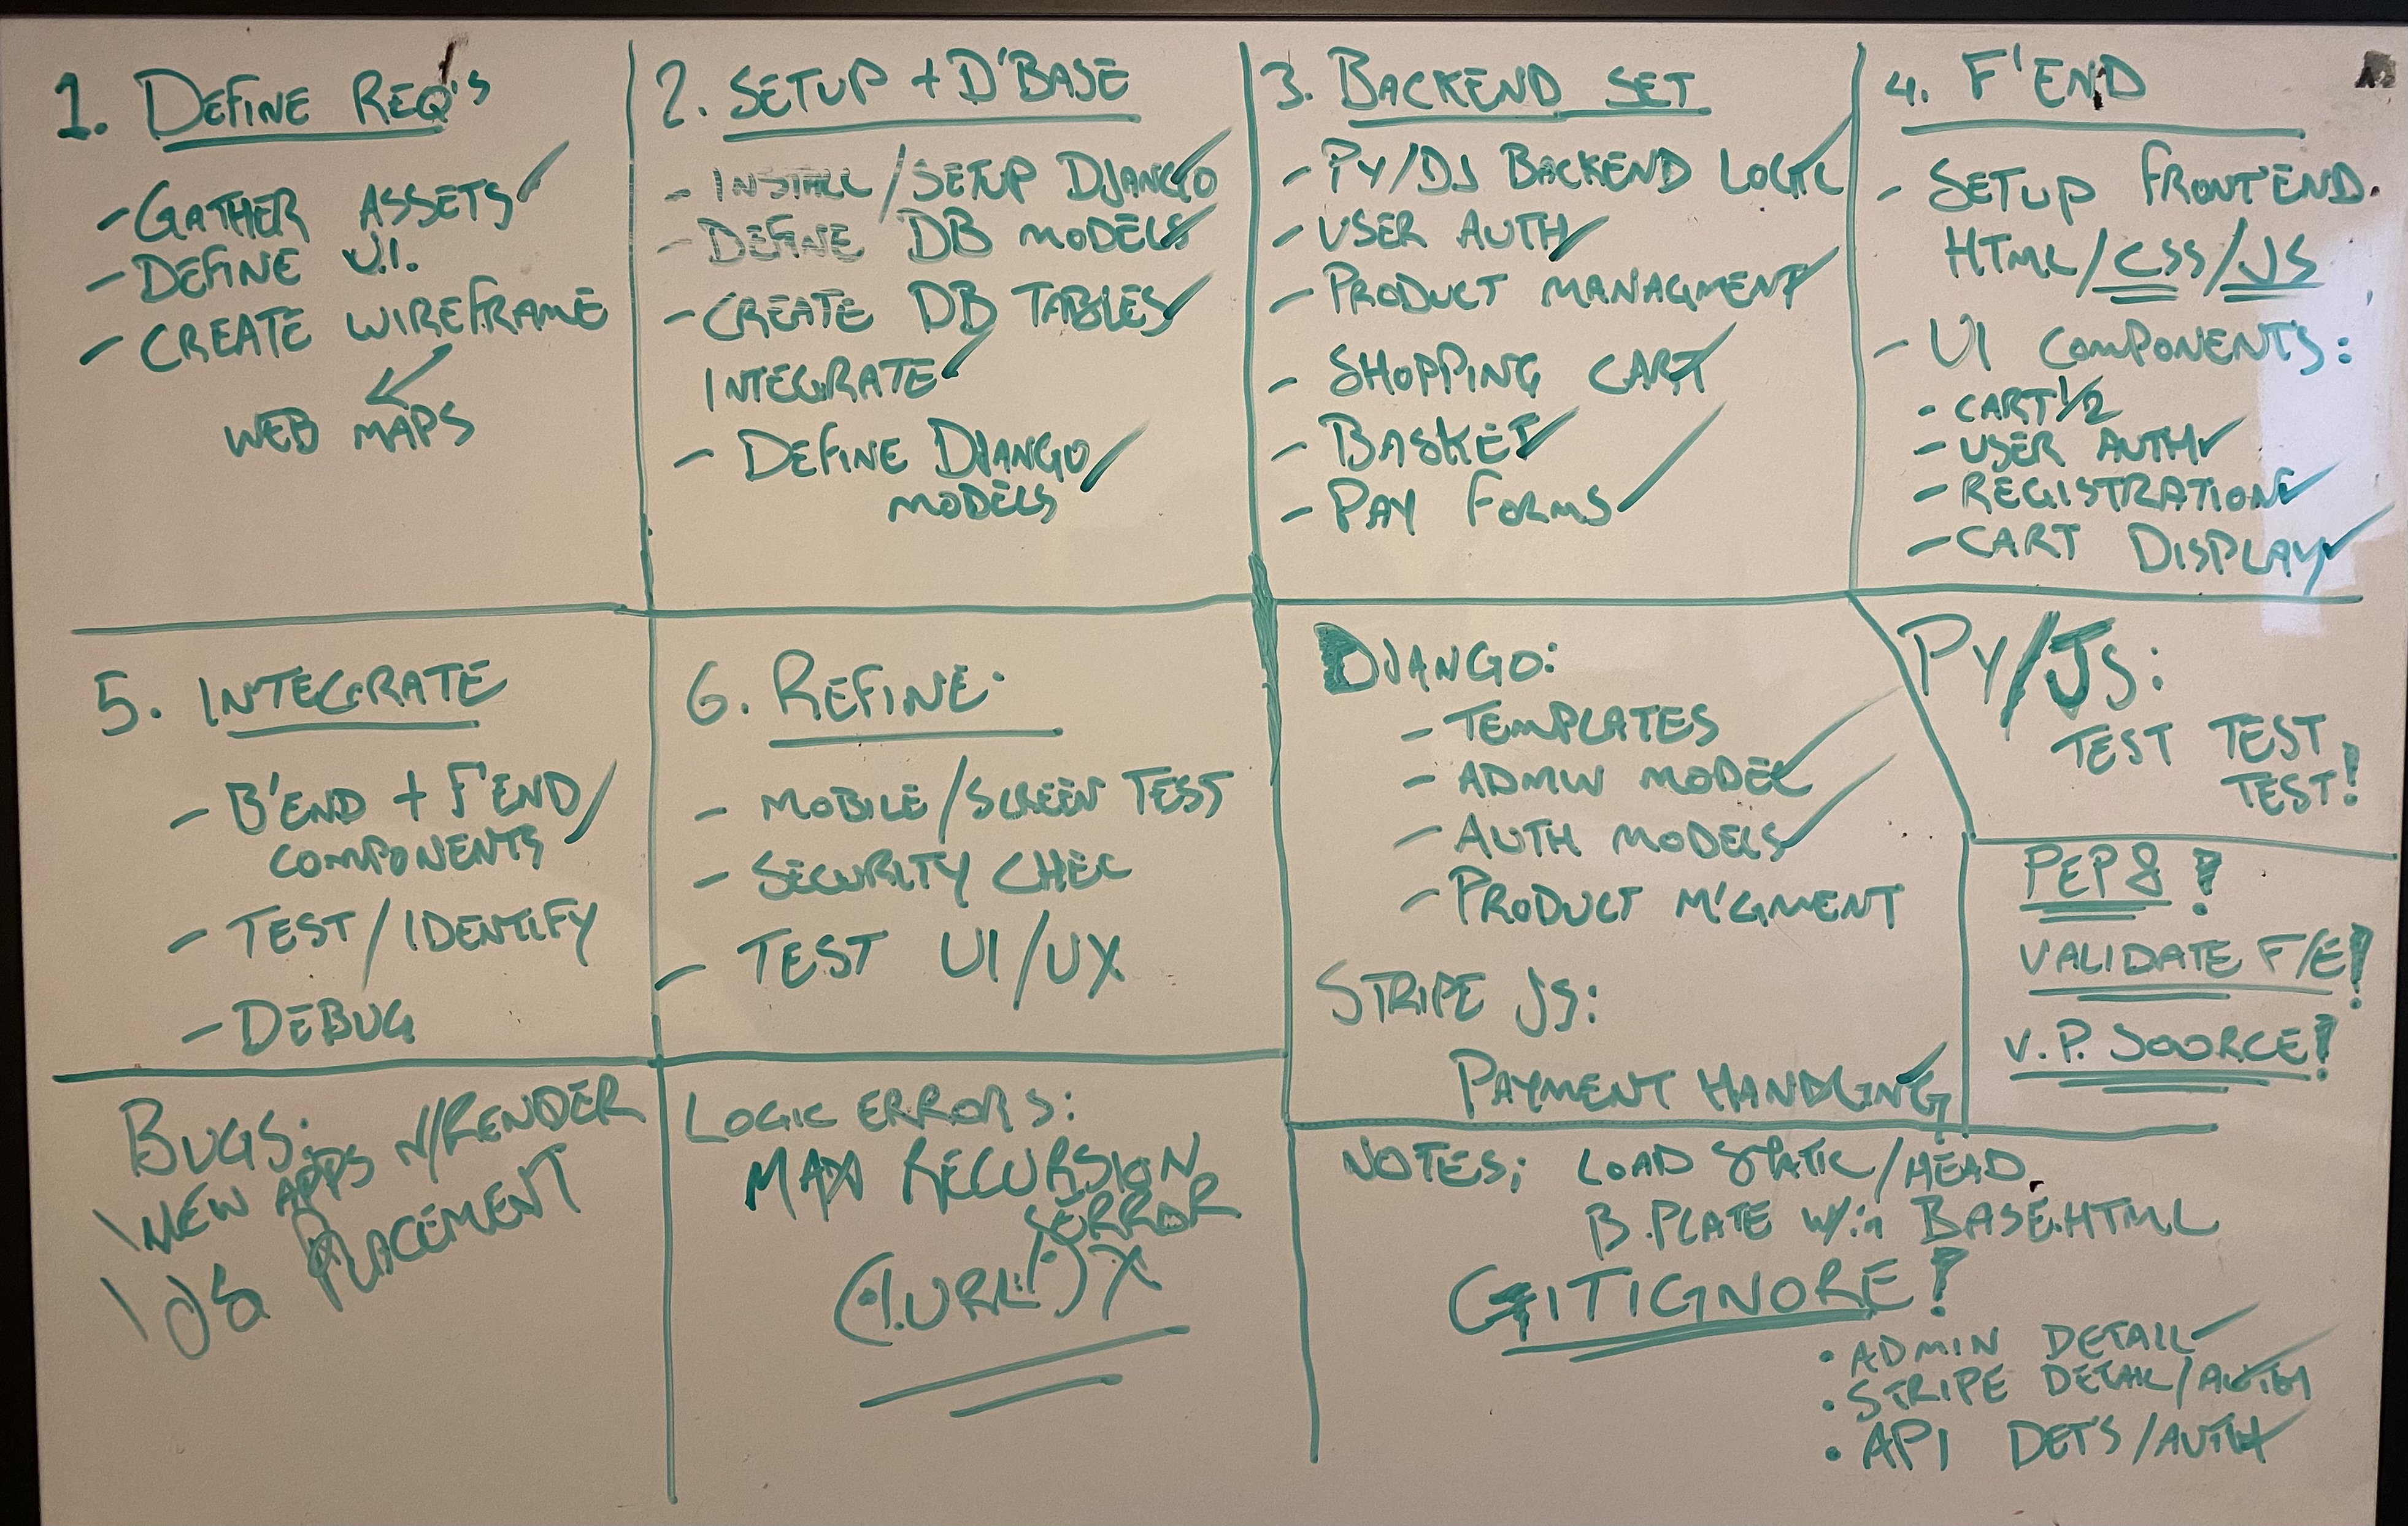 1. DEFINE REQ'S
- GATHER ASSETS ✓
- DEFINE U.I.
- CREATE WIREFRAME
WEB MAPS
2. SETUP + D'BASE
- INSTALL/SETUP DJANGO ✓
- DEFINE DB MODELS ✓
- CREATE DB TABLES ✓
INTEGRATE ✓
- DEFINE DJANGO ✓
MODELS
3. BACKEND SET
- PY/DJ BACKEND LOGIC ✓
- USER AUTH ✓
- PRODUCT MANAGMENT ✓
- SHOPPING CART ✓
- BASKET ✓
- PAY FORMS ✓
4. F'END
- SETUP FRONT'END.
HTML/CSS/JS
- UI COMPONENTS:
· CART 1/2
- USER AUTH ✓
- REGISTRATION ✓
- CART DISPLAY ✓
5. INTEGRATE
- B'END + F'END ✓
COMPONENTS
- TEST/IDENTIFY
- DEBUG
6. REFINE·
- MOBILE/SCREEN TEST
- SECURITY CHEC
- TEST UI/UX
DJANGO:
- TEMPLATES
- ADMIN MODEL ✓
- AUTH MODELS ✓
- PRODUCT M'GMENT
STRIPE JS:
PAYMENT HANDLING ✓
PY/JS:
TEST TEST
TEST!
PEP8!
VALIDATE F/E!
V.P. SOORCE!
BUGS:
\ NEW APPS N/RENDER
\ JS PLACEMENT
LOGIC ERRORS:
MAX RECURSION
ERROR
X
NOTES; LOAD STATIC/HEAD.
B.PLATE W/in BASE.HTML
GITIGNORE!
· ADMIN DETAIL ✓
· STRIPE DETAIL/AUTH ✓
· API DET'S/AUTH ✓